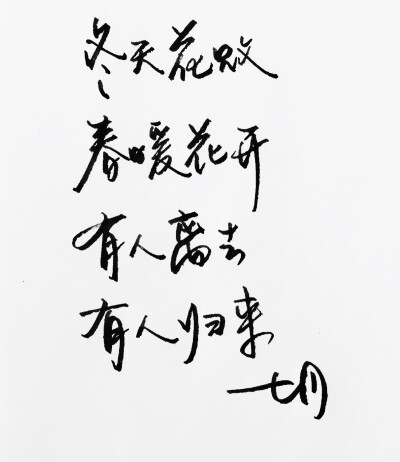 冬天花败
春暖花开
有人离去
有人归来
七月